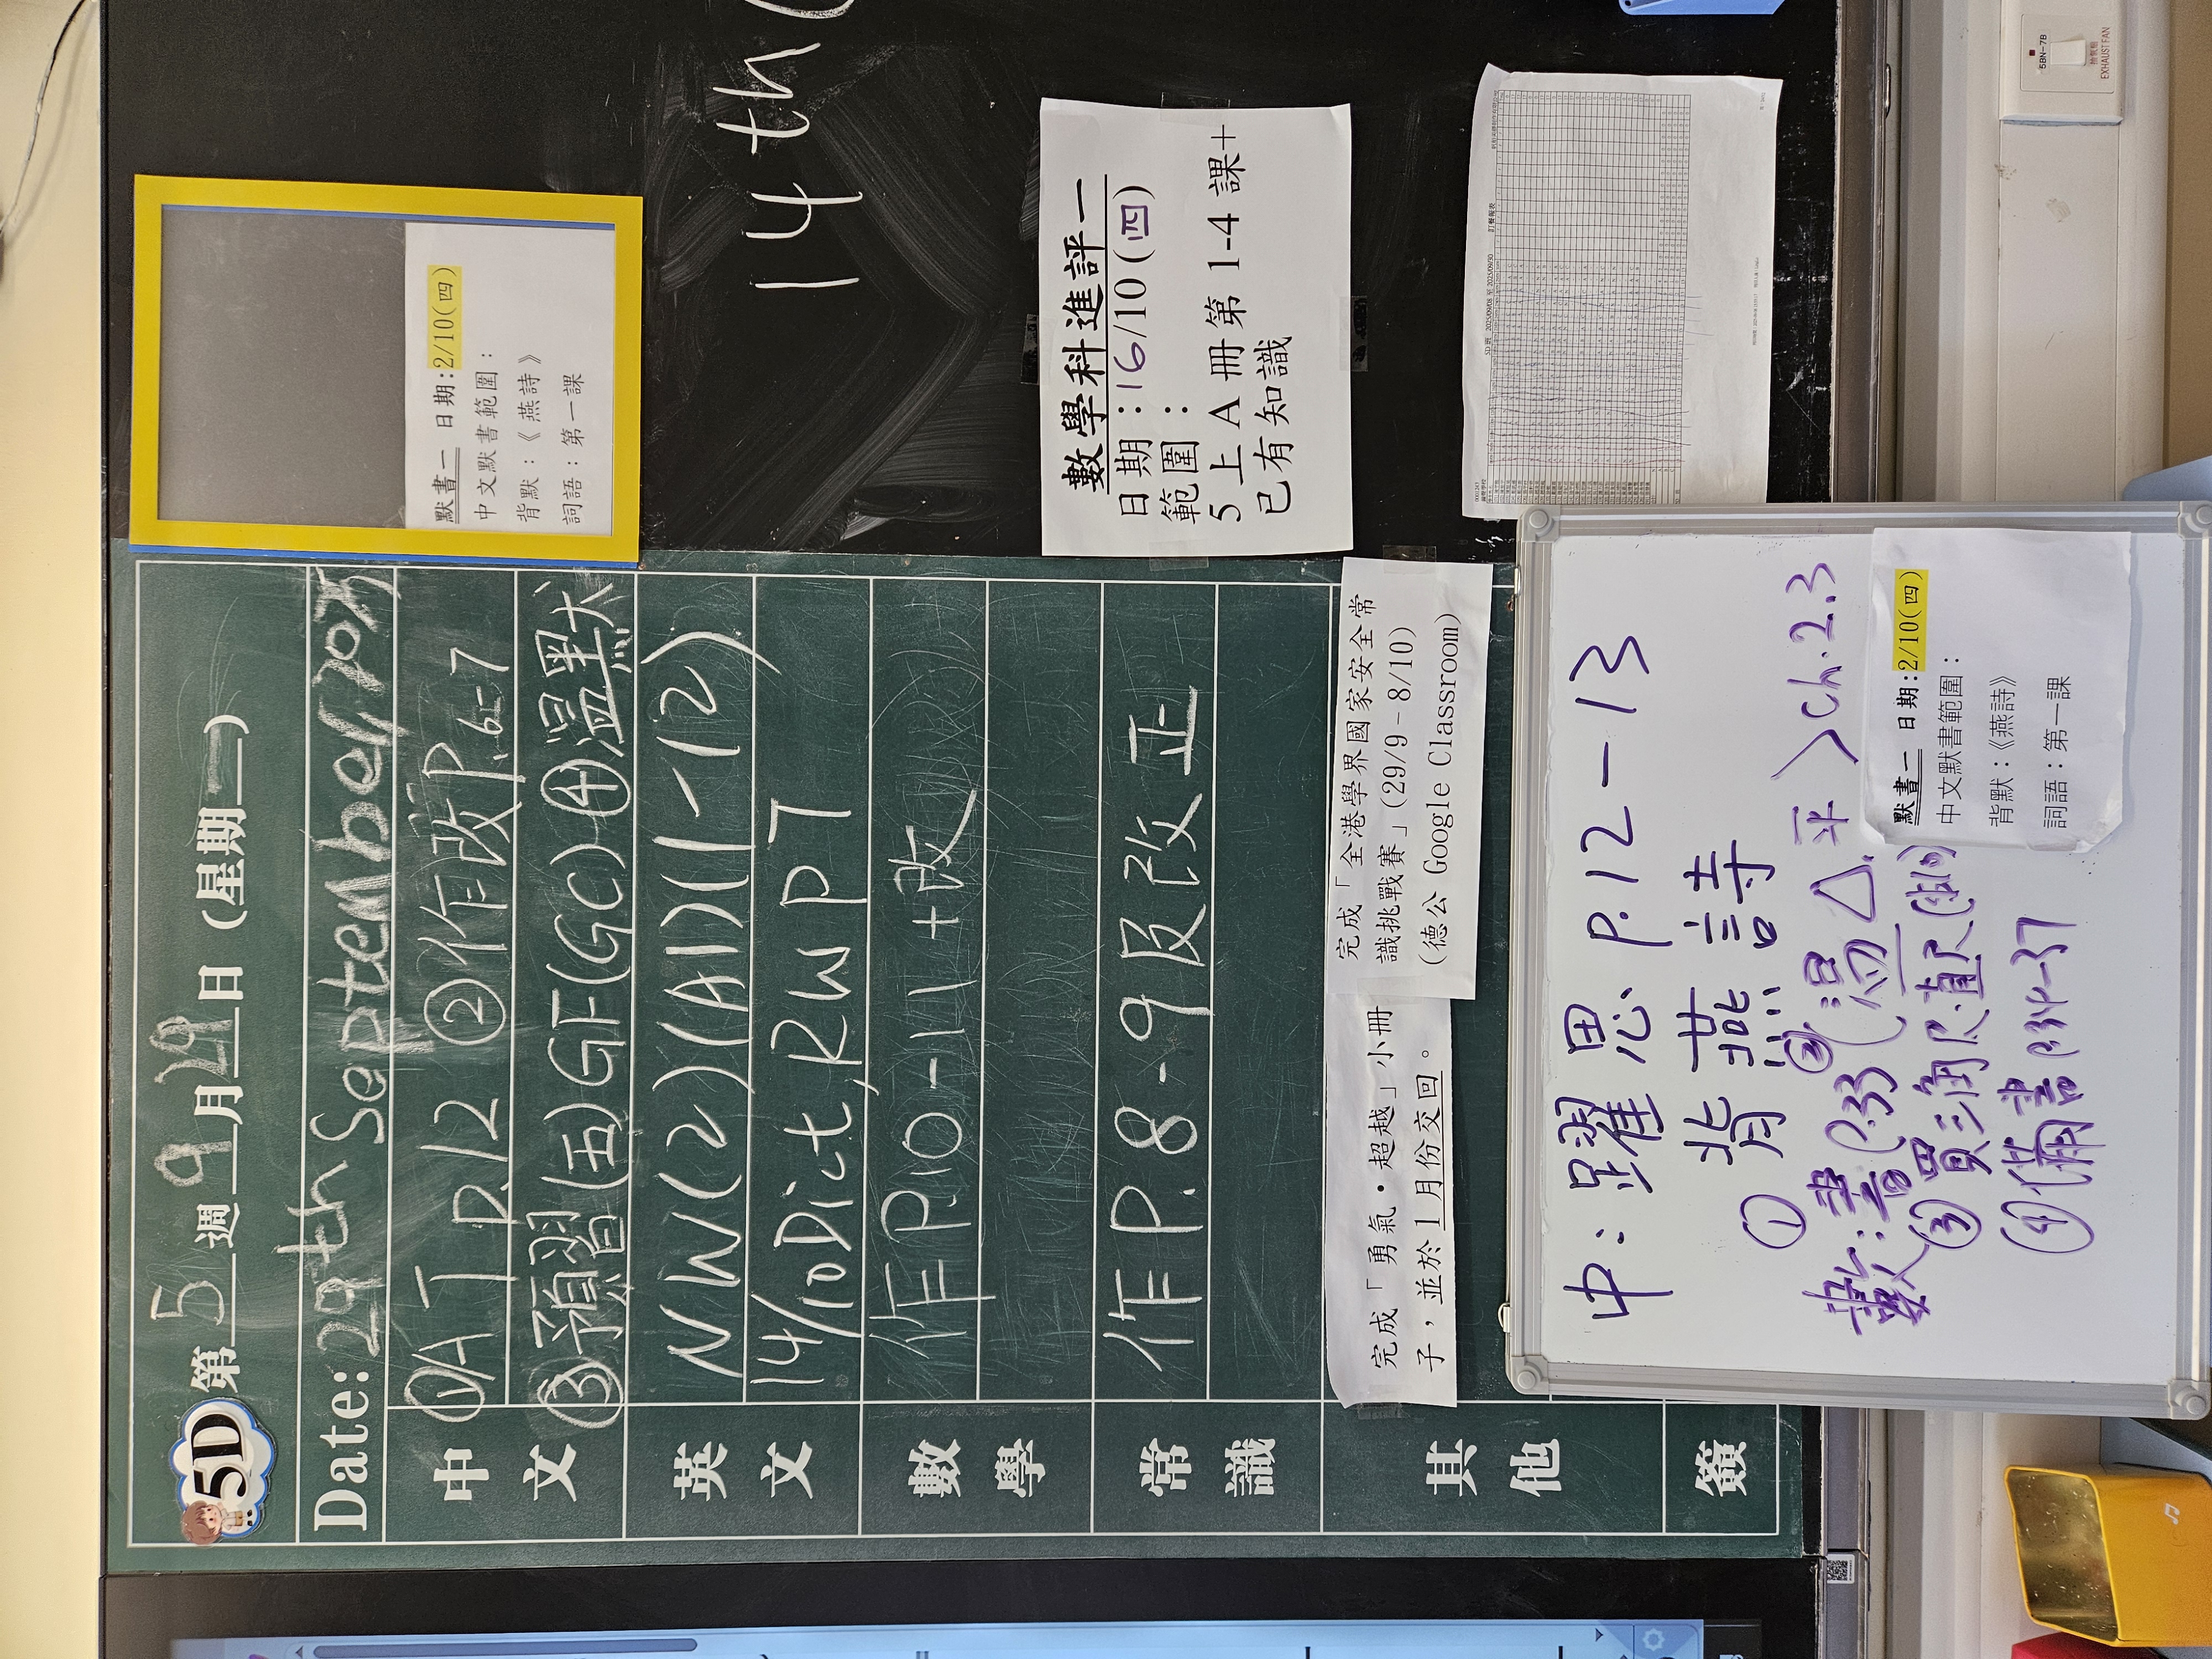 5D 第 5 週 9 月 29 日 (星期一)
Date: 29th September, 2025
中文
①AT P.12 ②作改P.6-7
③預習(五)GF(GC) ④溫默
英文
NW(2)(A1)(1-12)
14/10 Dict, RW P7
數學
作P.10-11+改
常識
作P.8-9及改正
其他
完成「勇氣•超越」小冊
子，並於1月份交回。
完成「全港學界國家安全常
識挑戰賽」(29/9-8/10)
(德公 Google Classroom)
簽
默書一 日期:2/10(四)
中文默書範圍：
背默：《燕詩》
詞語：第一課
14th
數學科進評一
日期：16/10(四)
範圍：
5上A冊第1-4課+
已有知識
5D 班
訂餐報表
中：躍思 P.12-13
背燕詩
數：①書P.33 ②(溫△.平>Ch.2.3
③買三角尺.直尺
④備書P.34-37
默書一 日期:2/10(四)
中文默書範圍：
背默：《燕詩》
詞語：第一課
5BN-7B
抽氣扇
EXHAUST FAN